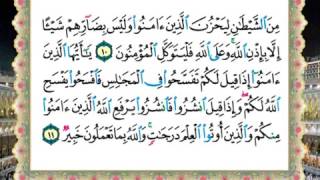 مِنَ ٱلشَّيْطَٰنِ لِيَحْزُنَ ٱلَّذِينَ ءَامَنُوا۟ وَلَيْسَ بِضَآرِّهِمْ شَيْـًٔا
إِلَّا بِإِذْنِ ٱللَّهِ وَعَلَى ٱللَّهِ فَلْيَتَوَكَّلِ ٱلْمُؤْمِنُونَ ١٠ يَٰٓأَيُّهَا ٱلَّذِينَ
ءَامَنُوٓا۟ إِذَا قِيلَ لَكُمْ تَفَسَّحُوا۟ فِى ٱلْمَجَٰلِسِ فَٱفْسَحُوا۟ يَفْسَحِ
ٱللَّهُ لَكُمْ وَإِذَا قِيلَ ٱنشُزُوا۟ فَٱنشُزُوا۟ يَرْفَعِ ٱللَّهُ ٱلَّذِينَ ءَامَنُوا۟
مِنكُمْ وَٱلَّذِينَ أُوتُوا۟ ٱلْعِلْمَ دَرَجَٰتٍ وَٱللَّهُ بِمَا تَعْمَلُونَ خَبِيرٌ ١١